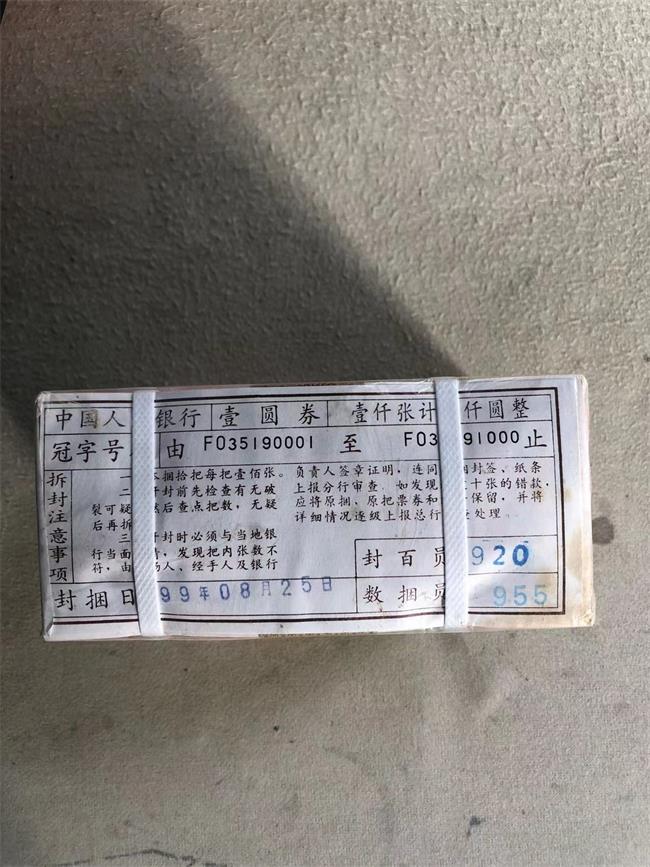 中国人 银行 壹圆券 壹仟张计 仟圆整
冠字号 由 F035190001 至 F03 91000 止
拆封注意事项
一 本捆拾把每把壹佰张。
二 开封前先检查有无破
裂可疑 然后查点把数，无疑
后再拆
三 开封时必须与当地银
行当面 清，发现把内张数不
符，由 场人、经手人及银行
负责人签章证明，连同 封签、纸条
上报分行审查。如发现 十张的错款，
应将原捆、原把票券和 保留，并将
详细情况逐级上报总行 处理。
封百员 920
封捆日 99年08月25日
数捆员 955